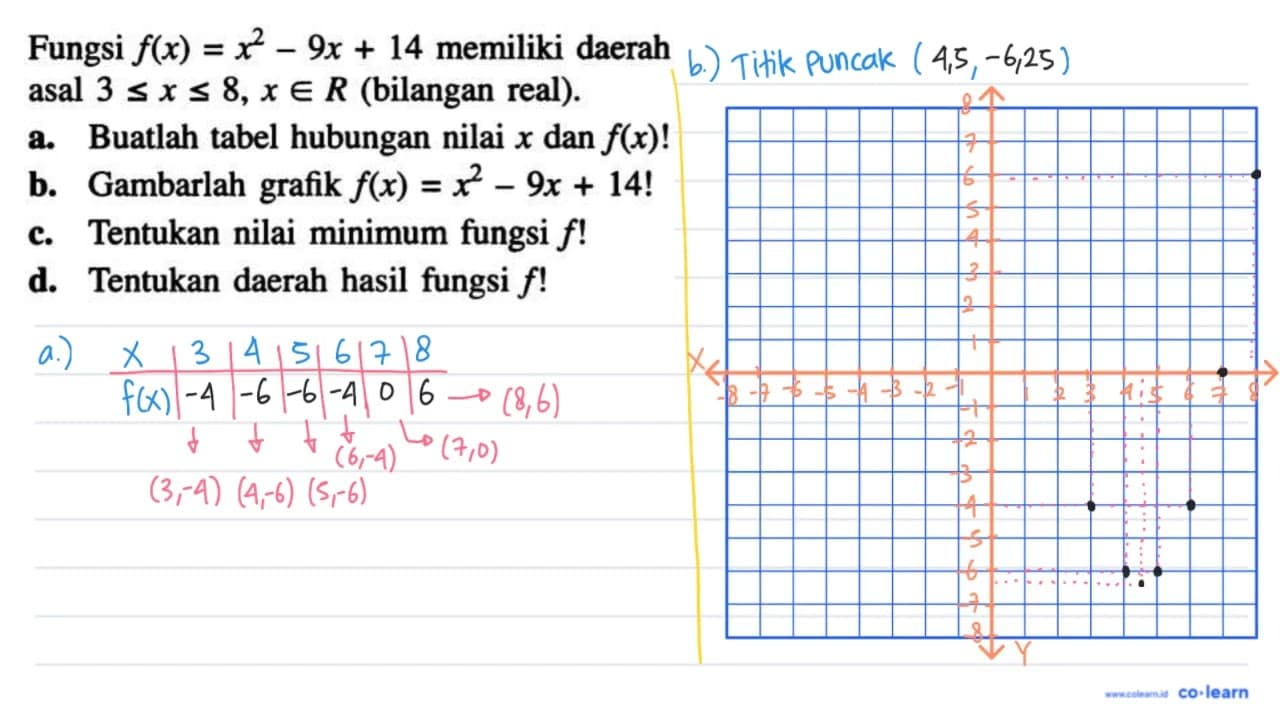 Fungsi f(x) = x² − 9x + 14 memiliki daerah
asal 3 ≤ x ≤ 8, x ∈ R (bilangan real).
a. Buatlah tabel hubungan nilai x dan f(x)!
b. Gambarlah grafik f(x) = x² − 9x + 14!
c. Tentukan nilai minimum fungsi f!
d. Tentukan daerah hasil fungsi f!
a.) x | 3 | 4 | 5 | 6 | 7 | 8
f(x) | -4 | -6 | -6 | -4 | 0 | 6 → (8,6)
(6,-4) (7,0)
(3,-4) (4,-6) (5,-6)
b.) Titik Puncak (4,5, -6,25)
8
7
6
5
4
3
2
1
X
-8 -7 -6 -5 -4 -3 -2 -1 1 2 3 4 5 6 7 8
-1
-2
-3
-4
-5
-6
-7
-8
Y
www.colearn.id co·learn